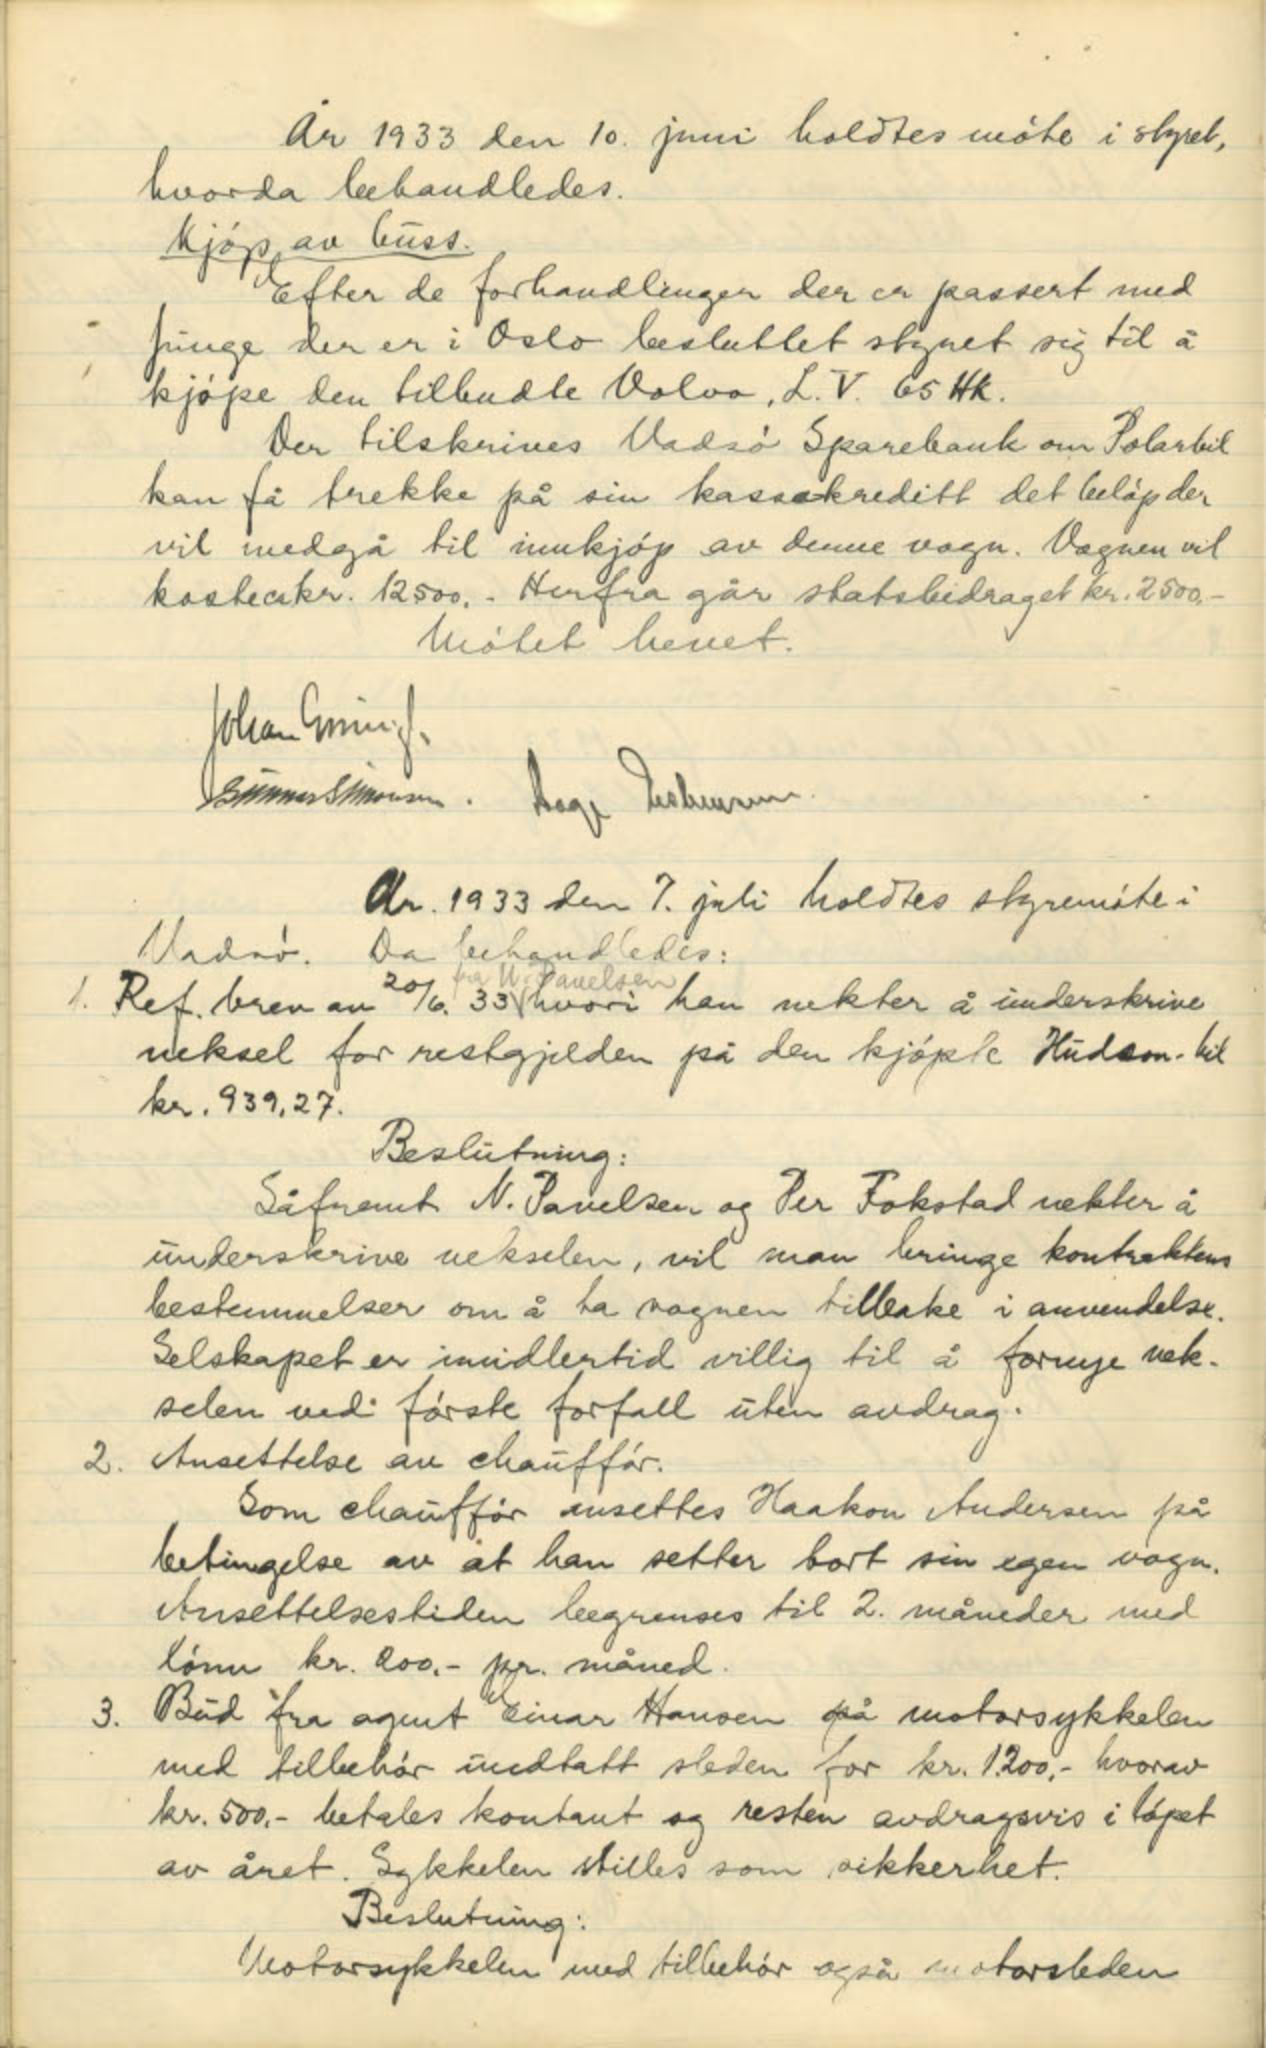 År 1933 den 10. juni holdtes möte i styret,
hvorda behandledes.
Kjöp av buss.
Efter de forhandlinger der er passert med
Junge der er i Oslo besluttet styret sig til å
kjöpe den tilbudte Volvo, L.V. 65 Hk.
Der tilskrives Vadsö Sparebank om Polarbil
kan få trekke på sin kassakreditt det belöp der
vil medgå til innkjöp av denne vogn. Vognen vil
koste kr. 12500.- Herfra går statsbidraget kr. 2500.-
Mötet hevet.
Johan
Gunnar Simonsen. Aage
År. 1933 den 7. juli holdtes styremöte i
Vadsö. Da behandledes:
fra N. Pavelsen
1. Ref. brev av 20/6. 33 hvori han nekter å underskrive
veksel for restgjelden på den kjöpte Hudson-bil
kr. 939,27.
Beslutning:
Såfremt N. Pavelsen og Per Fokstad nekter å
underskrive vekselen, vil man bringe kontraktens
bestemmelser om å ta vognen tilbake i anvendelse.
Selskapet er imidlertid villig til å fornye vek-
selen ved förste forfall uten avdrag.
2. Ansettelse av chaufför.
Som chaufför ansettes Haakon Andersen på
betingelse av at han setter bort sin egen vogn.
Ansettelsestiden begrenses til 2. måneder med
lönn kr. 200.- pr. måned.
3. Bud fra agent Einar Hansen på motorsykkelen
med tilbehör undtatt sleden for kr. 1200,- hvorav
kr. 500.- betales kontant og resten avdragsvis i löpet
av året. Sykkelen stilles som sikkerhet.
Beslutning:
Motorsykkelen med tilbehör også motorsleden